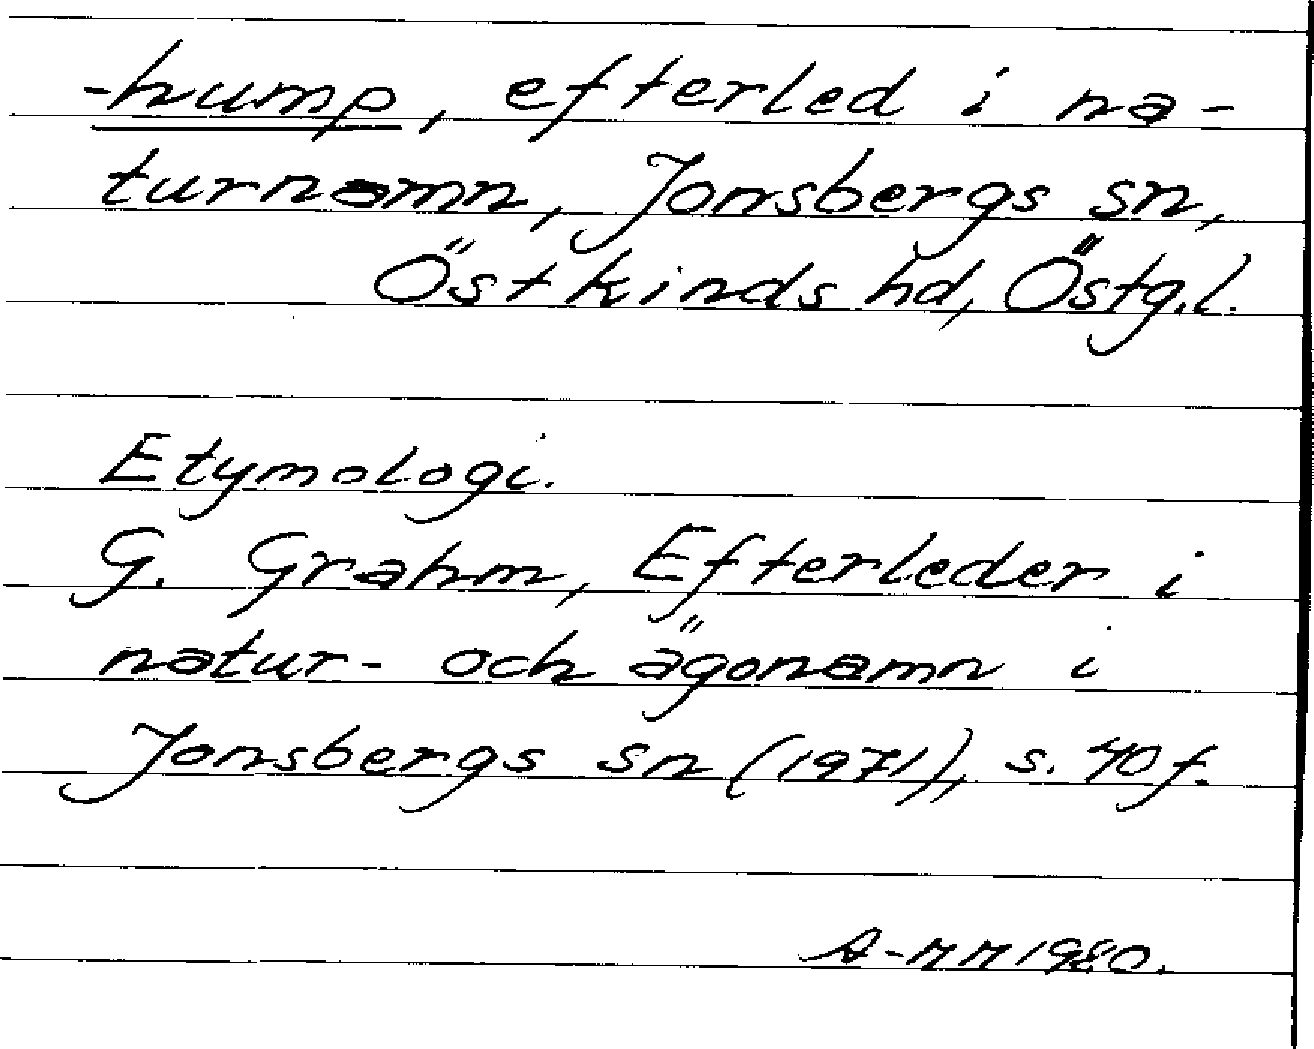 -hump, efterled i na-
turnamn, Jonsbergs sn,
Östkinds hd, Östg.l.
Etymologi.
G. Grahm, Efterleder i
natur- och ägonamn i
Jonsbergs sn (1971), s. 40 f.
A-MM 1980.